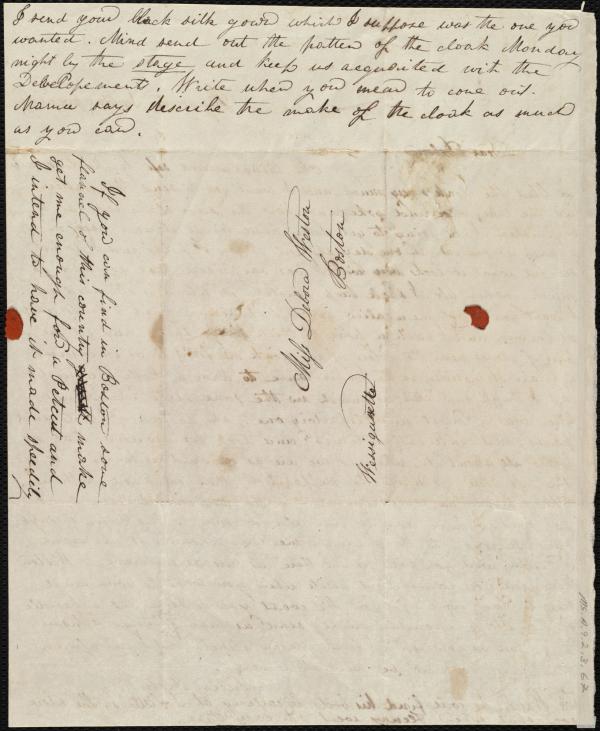 I send your black silk gown which I suppose was the one you
wanted. Mind send out the pattern of the cloak Monday
night by the stage and keep us acquainted with the
Developements. Write when you mean to come out.
Mama says describe the make of the cloak as much
as you can.
If you can find in Boston some
flannel of this country make
get me enough for a Peticoat and
I intend to have it made speedily
Miss Debora Weston
Boston
Ms. A.9.2.3.62